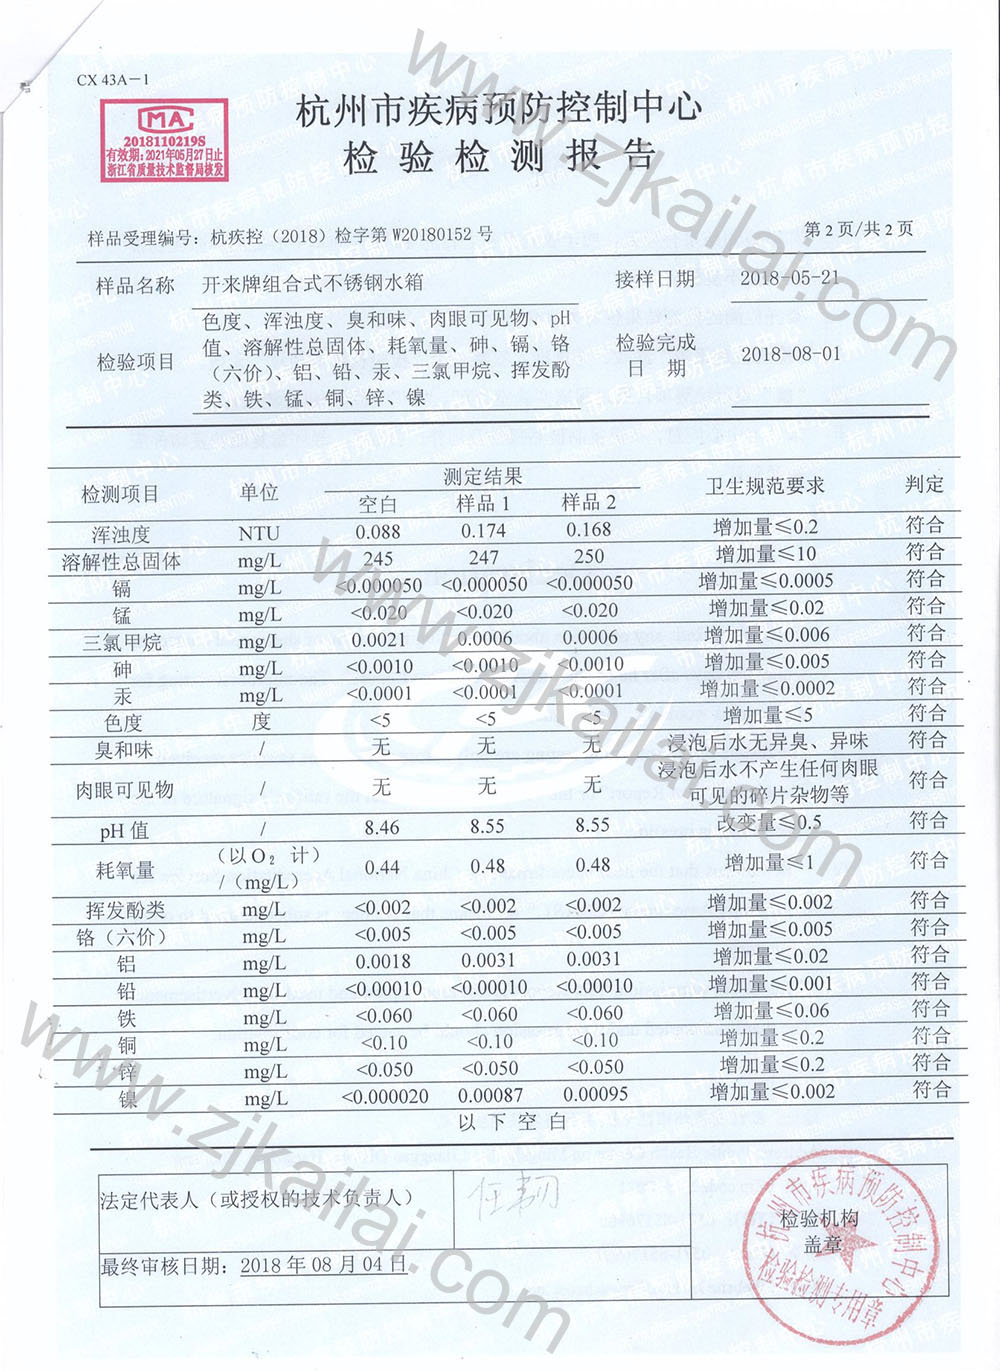 CX 43A－1
MA
2018110219S
有效期:2021年05月27日止
浙江省质量技术监督局核发
杭州市疾病预防控制中心
检验检测报告
样品受理编号：杭疾控（2018）检字第 W20180152 号
第 2 页/共 2 页
样品名称 开来牌组合式不锈钢水箱 接样日期 2018-05-21
检验项目
色度、浑浊度、臭和味、肉眼可见物、pH
值、溶解性总固体、耗氧量、砷、镉、铬
（六价）、铝、铅、汞、三氯甲烷、挥发酚
类、铁、锰、铜、锌、镍
检验完成
日 期
2018-08-01
检测项目 单位 测定结果 卫生规范要求 判定
空白 样品 1 样品 2
浑浊度 NTU 0.088 0.174 0.168 增加量≤0.2 符合
溶解性总固体 mg/L 245 247 250 增加量≤10 符合
镉 mg/L <0.000050 <0.000050 <0.000050 增加量≤0.0005 符合
锰 mg/L <0.020 <0.020 <0.020 增加量≤0.02 符合
三氯甲烷 mg/L 0.0021 0.0006 0.0006 增加量≤0.006 符合
砷 mg/L <0.0010 <0.0010 <0.0010 增加量≤0.005 符合
汞 mg/L <0.0001 <0.0001 <0.0001 增加量≤0.0002 符合
色度 度 <5 <5 <5 增加量≤5 符合
臭和味 / 无 无 无 浸泡后水无异臭、异味 符合
肉眼可见物 / 无 无 无 浸泡后水不产生任何肉眼
可见的碎片杂物等 符合
pH 值 / 8.46 8.55 8.55 改变量≤0.5 符合
耗氧量 （以O₂ 计）
/（mg/L） 0.44 0.48 0.48 增加量≤1 符合
挥发酚类 mg/L <0.002 <0.002 <0.002 增加量≤0.002 符合
铬（六价） mg/L <0.005 <0.005 <0.005 增加量≤0.005 符合
铝 mg/L 0.0018 0.0031 0.0031 增加量≤0.02 符合
铅 mg/L <0.00010 <0.00010 <0.00010 增加量≤0.001 符合
铁 mg/L <0.060 <0.060 <0.060 增加量≤0.06 符合
铜 mg/L <0.10 <0.10 <0.10 增加量≤0.2 符合
锌 mg/L <0.050 <0.050 <0.050 增加量≤0.2 符合
镍 mg/L <0.000020 0.00087 0.00095 增加量≤0.002 符合
以下空白
法定代表人（或授权的技术负责人）
最终审核日期：2018 年 08 月 04 日
检验机构
盖章
杭州市疾病预防控制中心
检验检测专用章
www.zjkailai.com
www.zjkailai.com
www.zjkailai.com